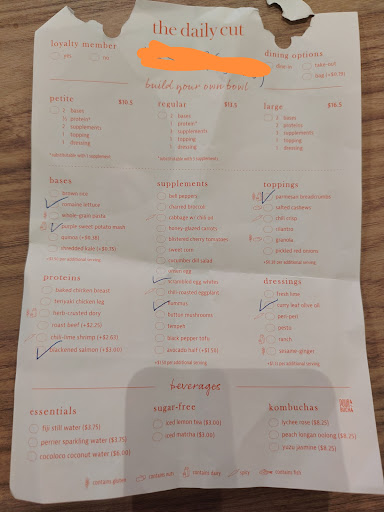 the daily cut
loyalty member
yes no
dining options
dine in take-out
bag (+$0.70)
build your own bowl
petite
2 bases
1 protein*
2 supplements
1 topping
1 dressing
*substitutable with 1 supplement
regular
2 bases
1 protein*
3 supplements
1 topping
1 dressing
*substitutable with 1 supplement
large $16.5
2 bases
2 proteins
3 supplements
1 topping
1 dressing
bases
brown rice
romaine lettuce
whole-grain pasta
purple sweet potato mash
quinoa
shredded kale
per additional serving
supplements
bell peppers
charred broccoli
cabbage w/ chili oil
honey-glazed carrots
blistered cherry tomatoes
sweet corn
cucumber dill salad
onsen egg
scrambled egg whites
miso-roasted eggplant
hummus
button mushrooms
tempeh
black pepper tofu
avocado half (+$1.50)
per additional serving
toppings
parmesan breadcrumbs
salted cashews
chili crisp
cilantro
granola
pickled red onions
per additional serving
proteins
baked chicken breast
teriyaki chicken leg
herb-crusted dory
roast beef (+$2.25)
chili-lime shrimp (+$2.63)
blackened salmon (+$3.00)
dressings
fresh lime
curry leaf olive oil
peri-peri
pesto
ranch
sesame-ginger
beverages
essentials
fiji still water ($3.75)
perrier sparkling water ($3.75)
cocoloco coconut water ($6.00)
sugar-free
iced lemon tea ($3.00)
iced matcha ($3.00)
kombuchas
lychee rose ($8.25)
peach longan oolong ($8.25)
yuzu jasmine ($8.25)
contains gluten contains nuts contains dairy spicy contains fish